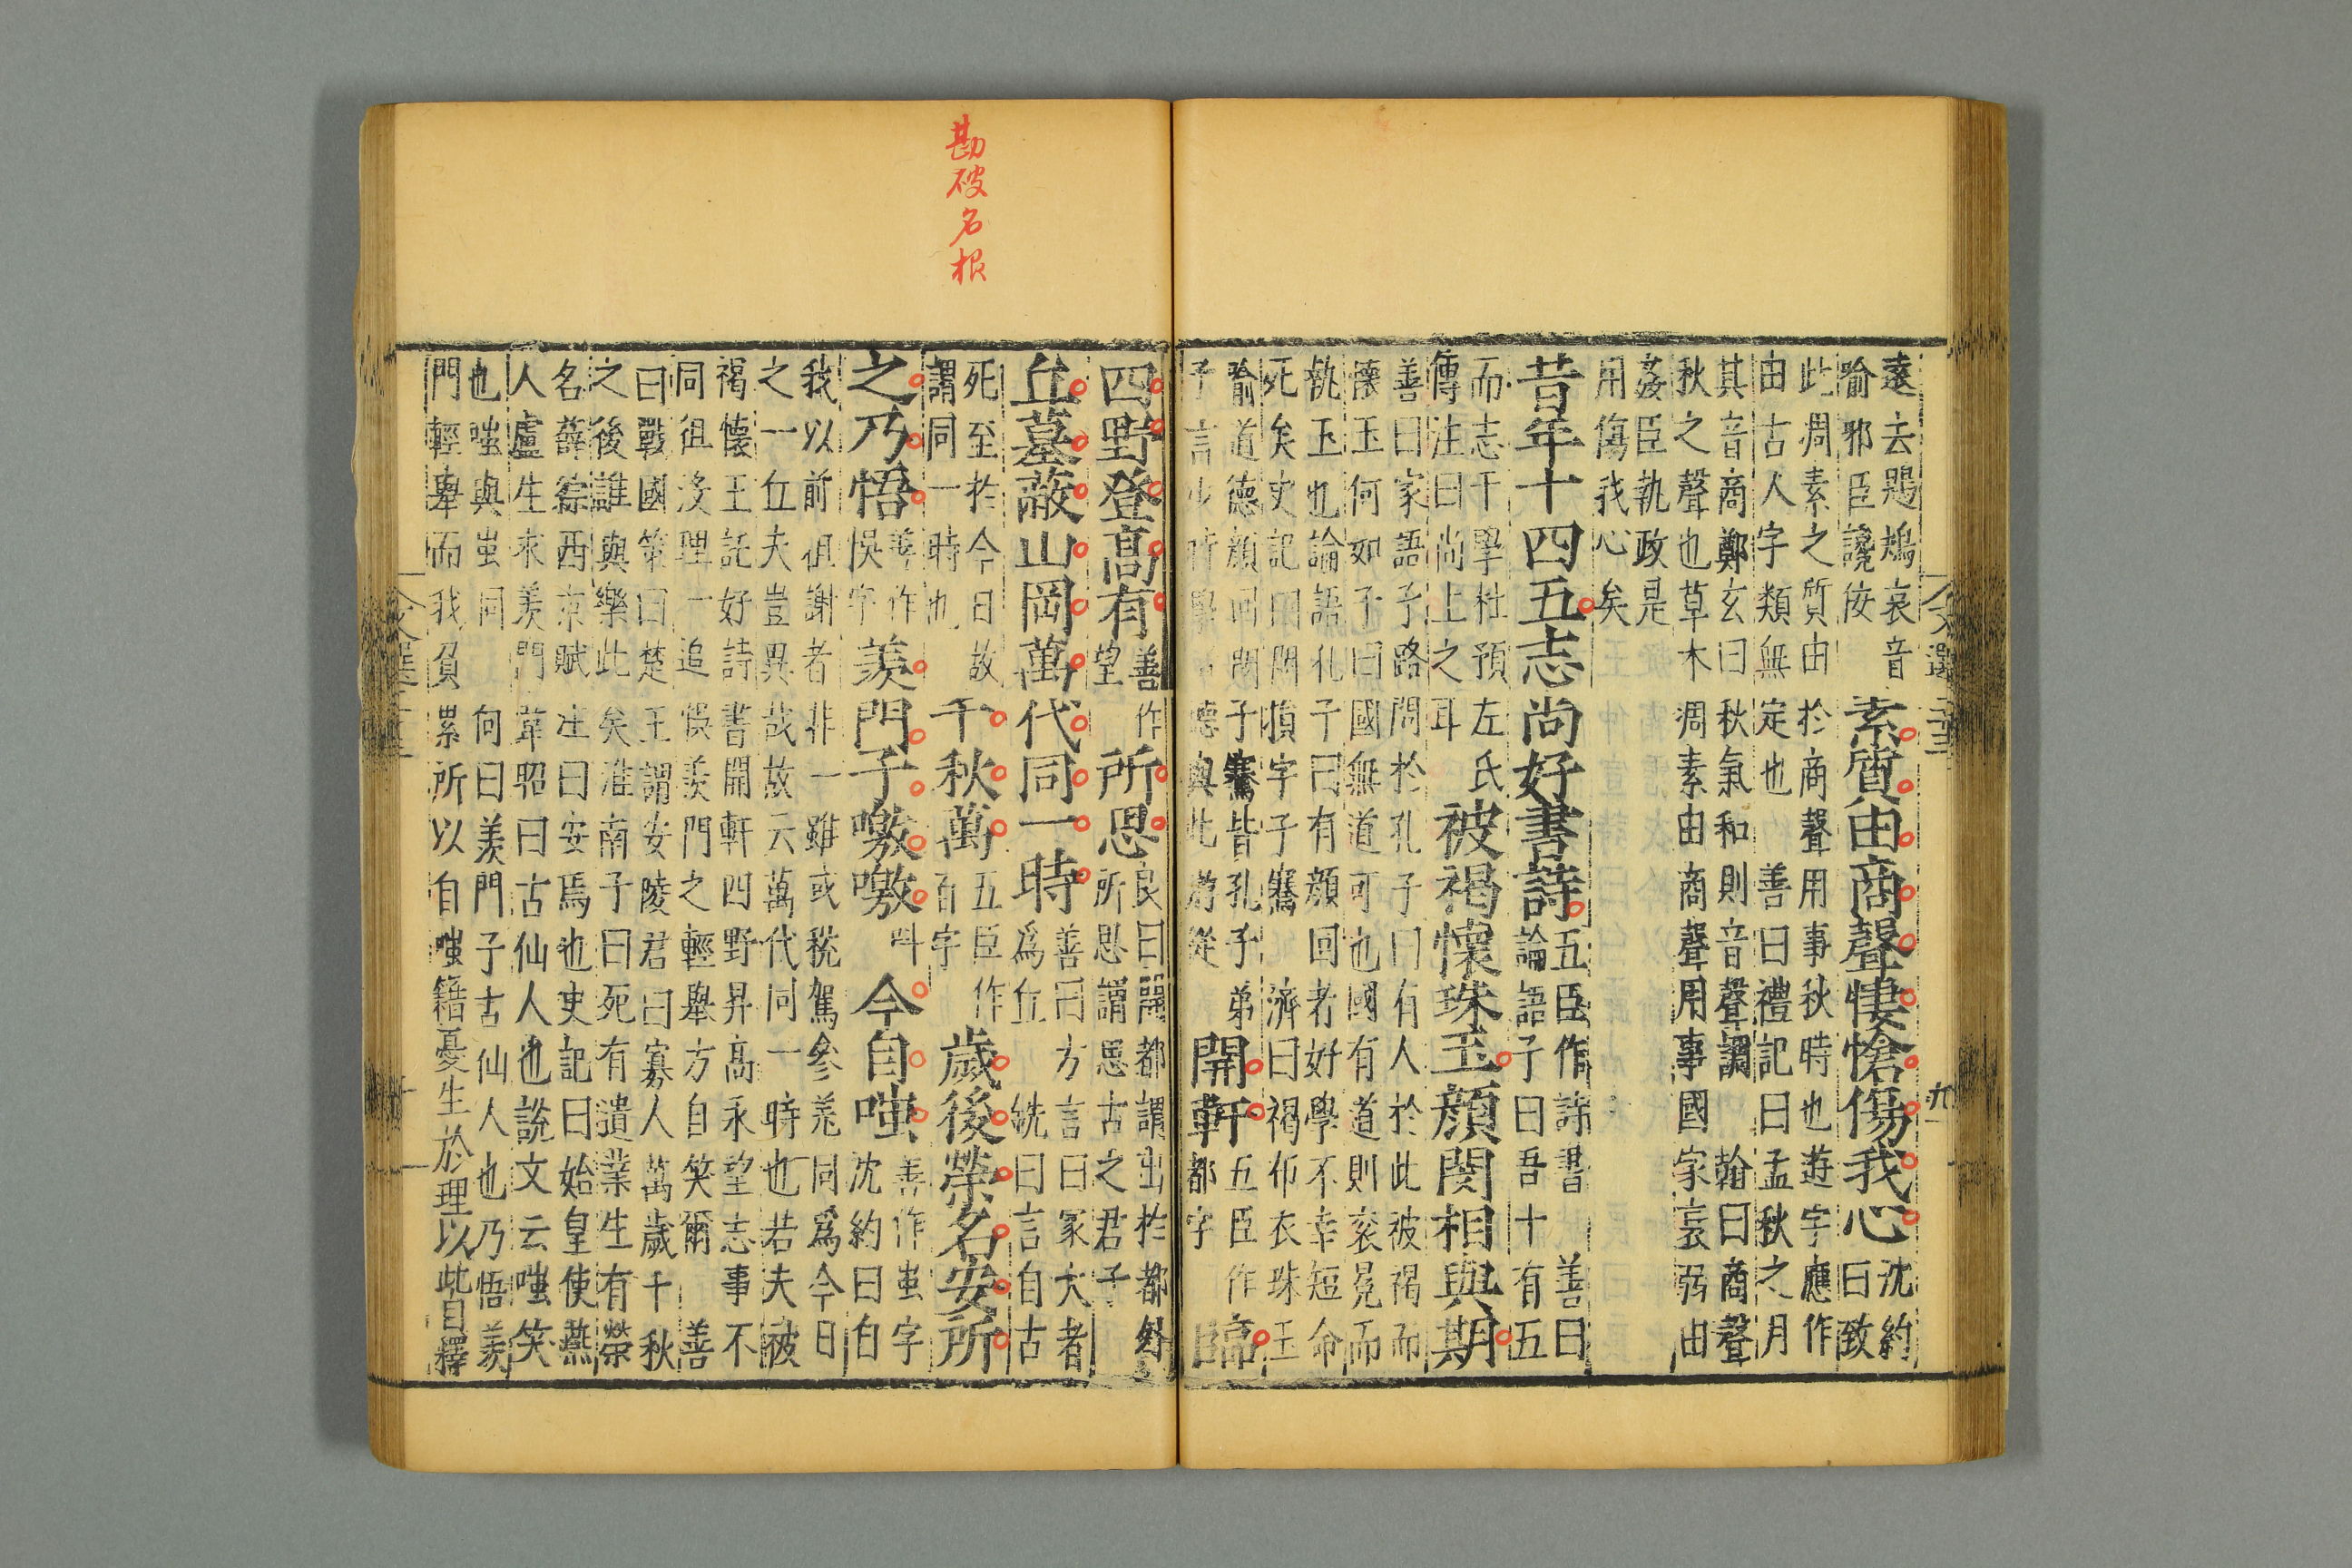 文選
九
遠去鶗鴂哀音
喻邪臣讒佞
素質由商聲悽愴傷我心
沈約
曰致
此凋素之質由於商聲用事秋時也遊字應作
由古人字類無定也 善曰禮記曰孟秋之月
其音商鄭玄曰秋氣和則音聲調 翰曰商聲
秋之聲也草木凋素由商聲用事國家哀弱由
姦臣執政是
用傷我心矣
昔年十四五志尚好書詩
五臣作詩書 善曰
論語子曰吾十有五
而志于學杜預左氏
傳注曰尚上之耳
被褐懷珠玉顏閔相與期
善曰家語子路問於孔子曰有人於此被褐而
懷玉何如子曰國無道可也國有道則袞冕而
執玉也論語孔子曰有顏回者好學不幸短命
死矣史記曰閔損字子騫 濟曰褐布衣珠玉
喻道德顏回閔子騫皆孔子弟
子言少時學 德與此 從
開軒
五臣作
都字
臨
勘破名根
四野登高有
善作
望
所思
良曰開都謂出於都外
所思謂思古之君子
丘墓蔽山岡萬代同一時
善曰方言曰冢大者
為丘 銑曰言自古
死至於今日故
謂同一時也
千秋萬
五臣作
百字
歲後榮名安所
之乃悟
善作
悞字
羨門子噭噭
叫
今自嗤
善作蚩字
沈約曰自
我以前徂謝者非一雖或稅駕參差同為今日
之一丘夫豈異哉故云萬代同一時也若夫被
褐懷王託好詩書開軒四野昇高永望志事不
同徂沒理一追悞羨門之輕舉方自笑爾 善
曰戰國策曰楚王謂安陵君曰寡人萬歲千秋
之後誰與樂此矣淮南子曰死有遺業生有榮
名薛綜西京賦注曰安焉也史記曰始皇使燕
人盧生求羨門韋昭曰古仙人也說文云嗤笑
也嗤與蚩同 向曰羨門子古仙人也乃悟羨
門輕舉而我負累所以自嗤籍憂生於理以此自釋